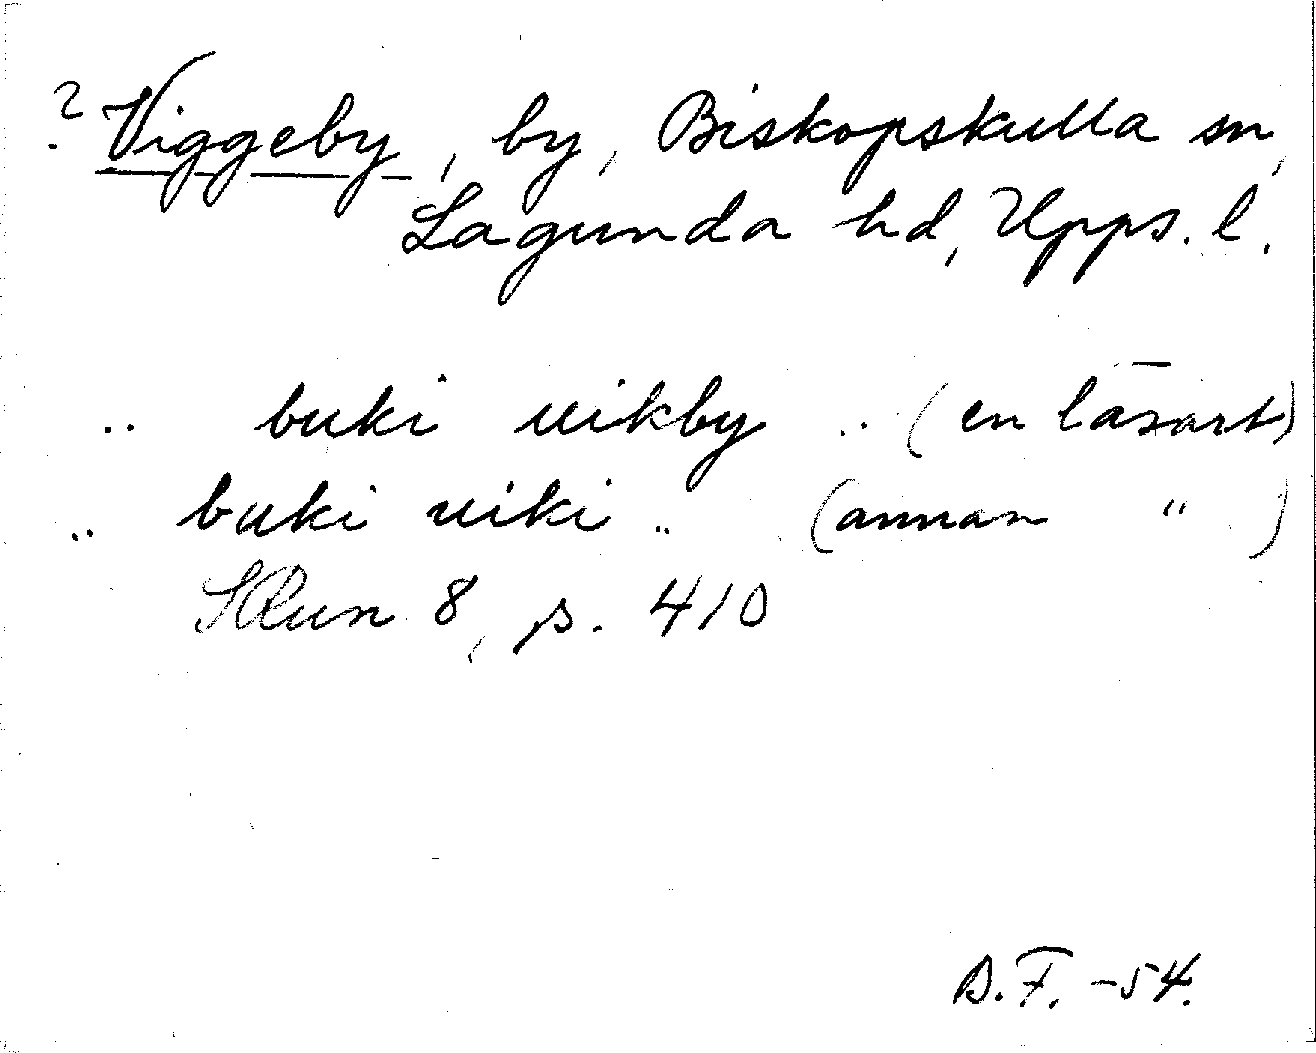 ? Viggeby, by, Biskopskulla sn,
Lagunda hd, Upps. l.
.. buki uikby .. (en läsart)
.. buki uiki .. (annan ")
SRun 8, s. 410
B.F. -54.